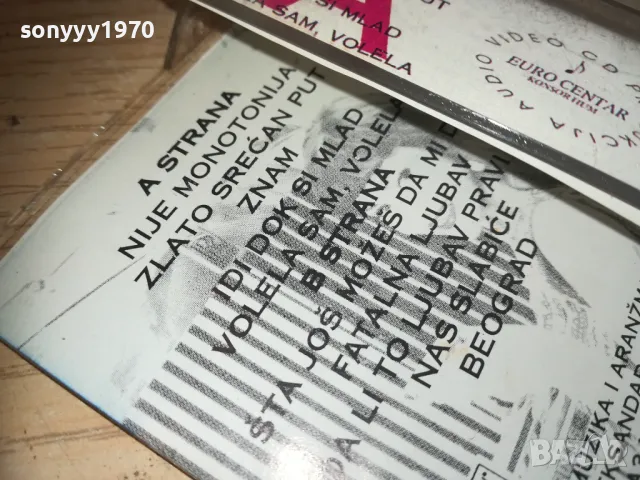 sonyyy1970
A STRANA
NIJE MONOTONIJA
ZLATO SREĆAN PUT
ZNAM
IDI DOK SI MLAD
VOLELA SAM, VOLELA
B STRANA
ŠTA JOŠ MOŽEŠ DA MI
FATALNA LJUBAV
DA LI TO LJUBAV PRAVI
NAS SLABIĆE
BEOGRAD
SI MLAD
SAM, VOLELA
AUDIO VIDEO CD
EURO CENTAR
KONSORTIUM
I ARANŽ
BAZAR